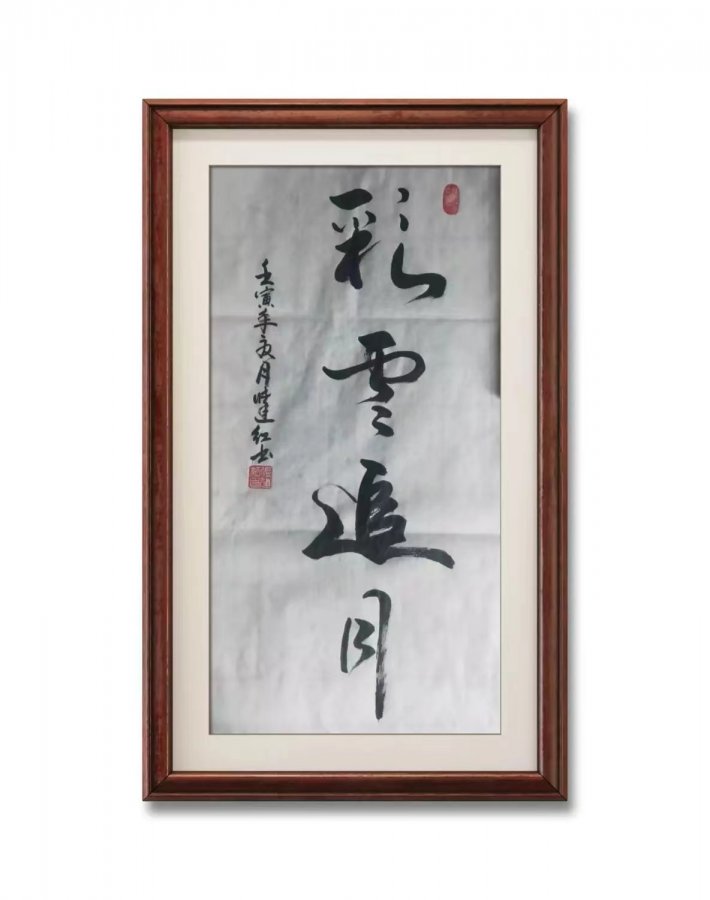 彩云追月
壬寅年亥月 建红书